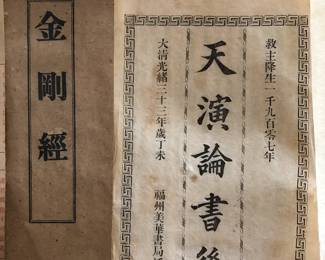 救主降生一千九百零七年
天演論書後
大清光緒三十三年歲丁未
福州美華書局
金剛經